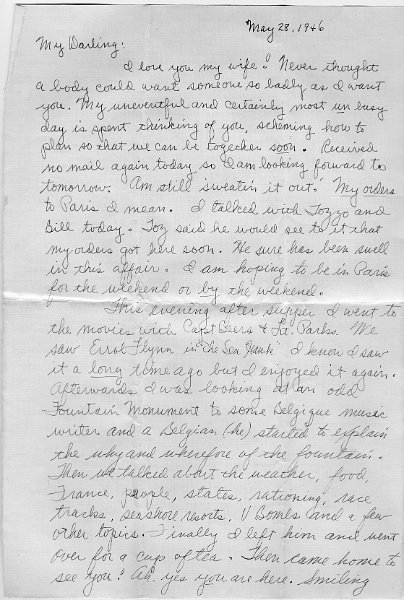 May 28, 1946
My Darling:
I love you my wife! Never thought
a body could want someone so badly as I want
you. My uneventful and certainly most un busy
day is spent thinking of you, scheming how to
plan so that we can be together soon. Received
no mail again today so I am looking forward to
tomorrow. Am still sweatin it out! My orders
to Paris I mean. I talked with Tozzo and
Bill today. Toz said he would see to it that
my orders got here soon. He sure has been swell
in this affair. I am hoping to be in Paris
for the weekend or by the weekend.
This evening after supper I went to
the movies with Capt & Lt. Parks. We
saw Errol Flynn in "The Sea Hawk" I know I saw
it a long time ago but I enjoyed it again.
Afterwards I was looking at an odd
Fountain Monument to some Belgique music
writer and a Belgian (he) started to explain
the why and wherefore of the fountain.
Then we talked about the weather, food,
France, people, states, rationing, race
tracks, seashore resorts, V Bombs and a few
other topics. Finally I left him and went
over for a cup of tea. Then came home to
see you! Ah yes you are here. Smiling